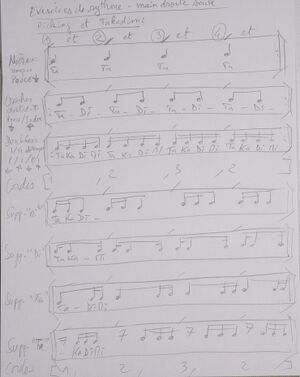 Exercices de rythme - main droite seule
Picking et Takadimi
① et ② et ③ et ④ et
Noires
Pouce
Ta Ta Ta Ta
Croches
Ta - Di - Ta - Di - Ta - Di - Ta - Di -
Doubles
Ta Ka Di Mi Ta Ka Di Mi Ta Ka Di Mi Ta Ka Di Mi
Cordes 1 2 3 2
Supp.
Ta Ka Di -
Supp. "Di"
Ta Ka - Mi
Supp. "Ka"
Ta - Di Mi
Supp. "Ta"
- Ka Di Mi
Cordes 1, 2 3 2